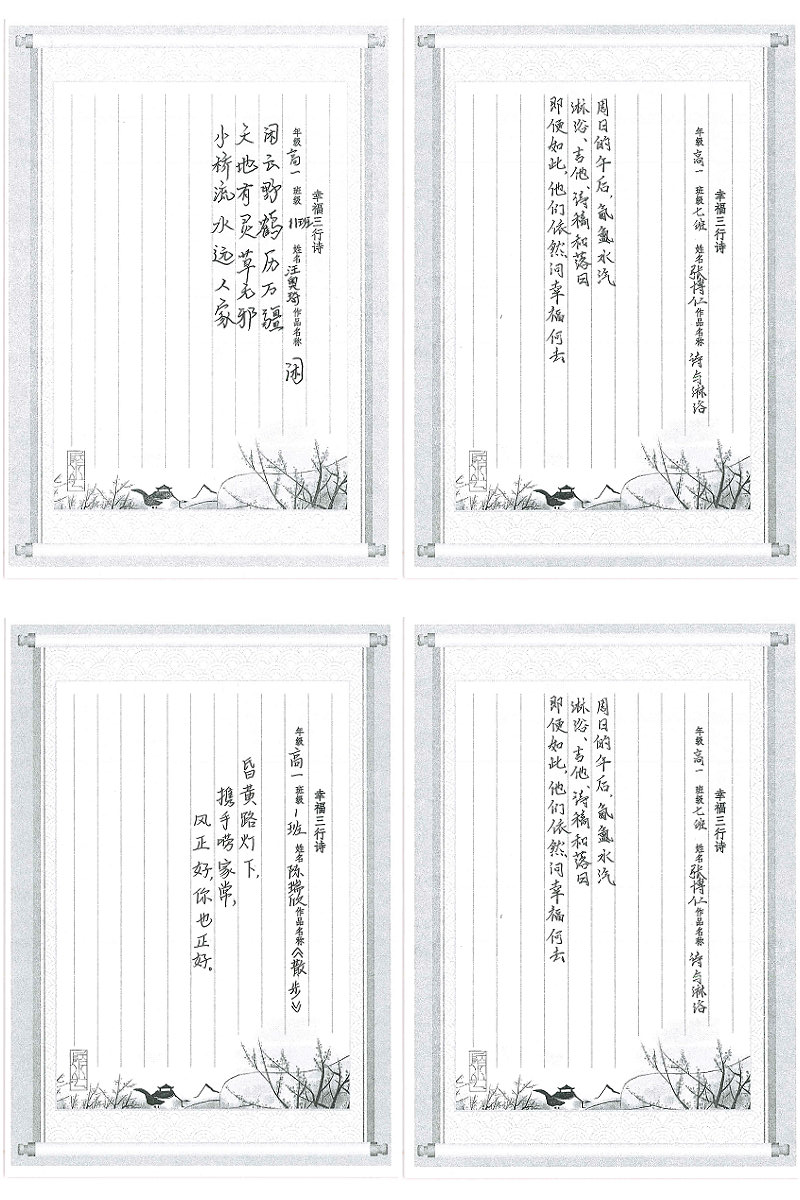 幸福三行诗
年级 高一 班级 11班 姓名 汪奥琦 作品名称 闲
闲云野鹤历万疆
天地有灵草无邪
小桥流水远人家
幸福三行诗
年级 高一 班级 七班 姓名 张博仁 作品名称 诗与淋浴
周日的午后,氤氲水汽
淋浴、吉他、诗稿和落日
即便如此,他们依然问幸福何去
幸福三行诗
年级 高一 班级 1班 姓名 陈瑞欣 作品名称《散步》
昏黄路灯下,
携手唠家常,
风正好,你也正好。
幸福三行诗
年级 高一 班级 七班 姓名 张博仁 作品名称 诗与淋浴
周日的午后,氤氲水汽
淋浴、吉他、诗稿和落日
即便如此,他们依然问幸福何去